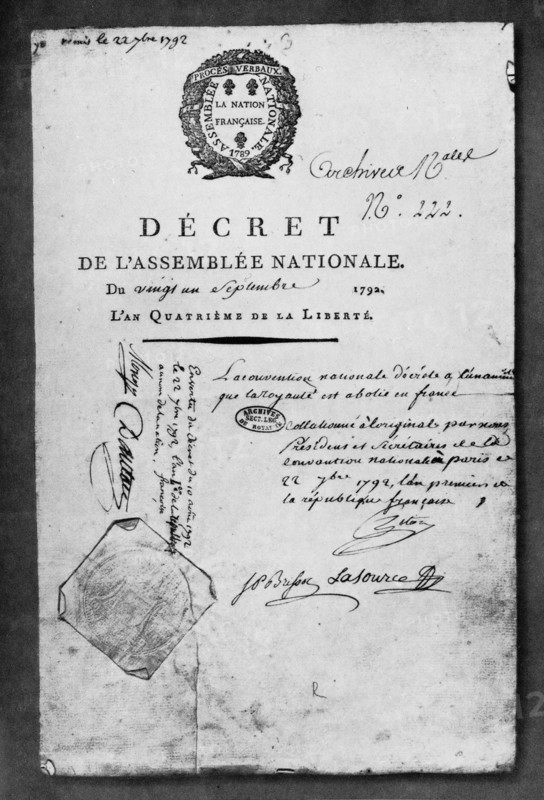 remis le 22 7bre 1792
PROCÈS VERBAUX
ASSEMBLÉE NATIONALE.
LA NATION
FRANÇAISE.
1789
Archives Nales
No. 222.
DÉCRET
DE L'ASSEMBLÉE NATIONALE.
Du vingt un Septembre 1792.
L'AN QUATRIÈME DE LA LIBERTÉ.
La convention nationale décrète a l'unanimité
que la royauté est abolie en france
ARCHIVES
SECT. LEG.
DU ROYAUME
Collationné à l'original par nous
Président et Sécrétaires de la
convention nationale a paris le
22 7bre 1792, l'an premier de
la république françoise
JP Brissot Lasource
En vertu du décret du 10 août 1792
le 22 7bre 1792 l'an 1er de la République
au nom de la nation françoise
Monge Danton